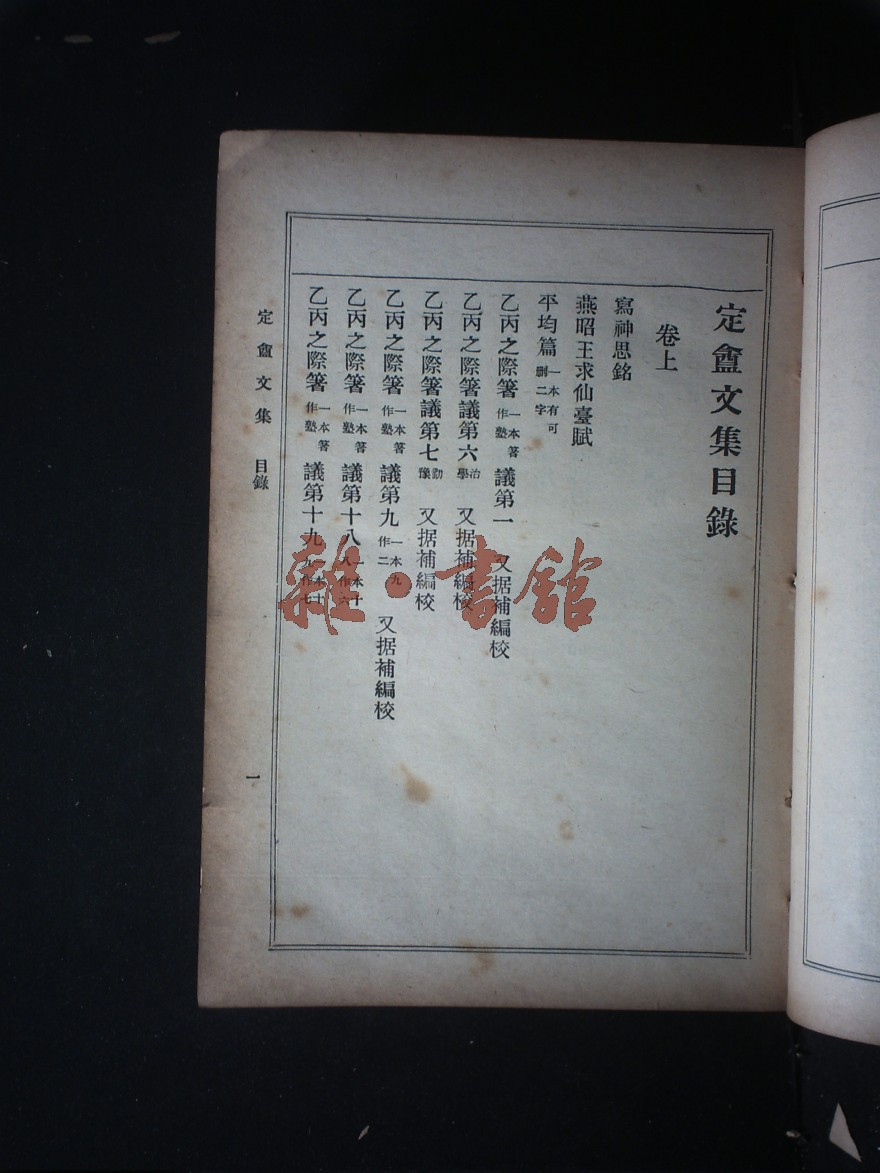 定盦文集目錄
卷上
寫神思銘
燕昭王求仙臺賦
平均篇 一本有可刪二字
乙丙之際箸 一本箸作塾 議第一 又据補編校
乙丙之際箸議第六 治學 又据補編校
乙丙之際箸議第七 勸豫 又据補編校
乙丙之際箸 一本箸作塾 議第九 一本九作二 又据補編校
乙丙之際箸 一本箸作塾 議第十八 一本十八作六
乙丙之際箸 一本箸作塾 議第十九 一本十九作七
定盦文集 目錄
一
雜·書館